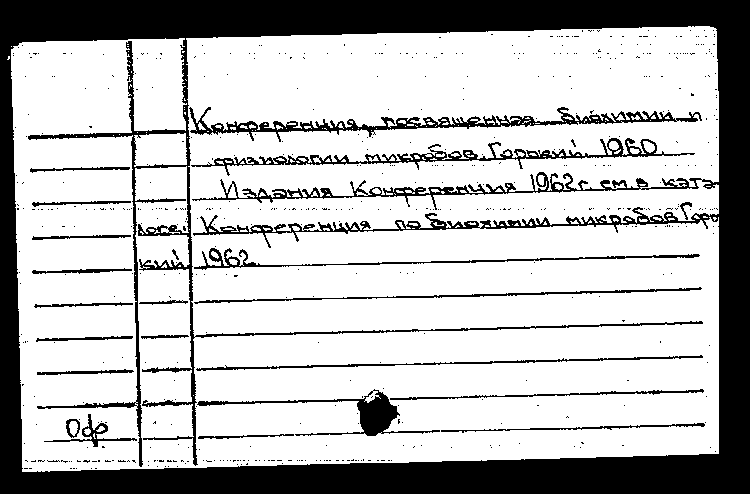 Конференция, посвященная биохимии и
физиологии микробов. Горький. 1960.
Издания Конференция 1962 г. см. в ката-
логе: Конференция по биохимии микробов Горь
кий. 1962
Одф